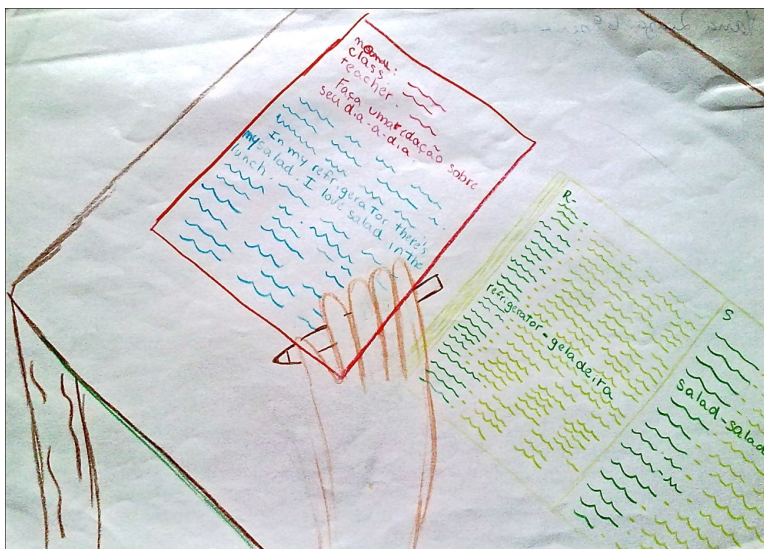 name:
class:
teacher.
Faça uma redação sobre
seu dia-a-dia.
In my refrigerator there's
my salad. I love salad in the
lunch.
R-
refrigerator-geladeira
S
salad-salad